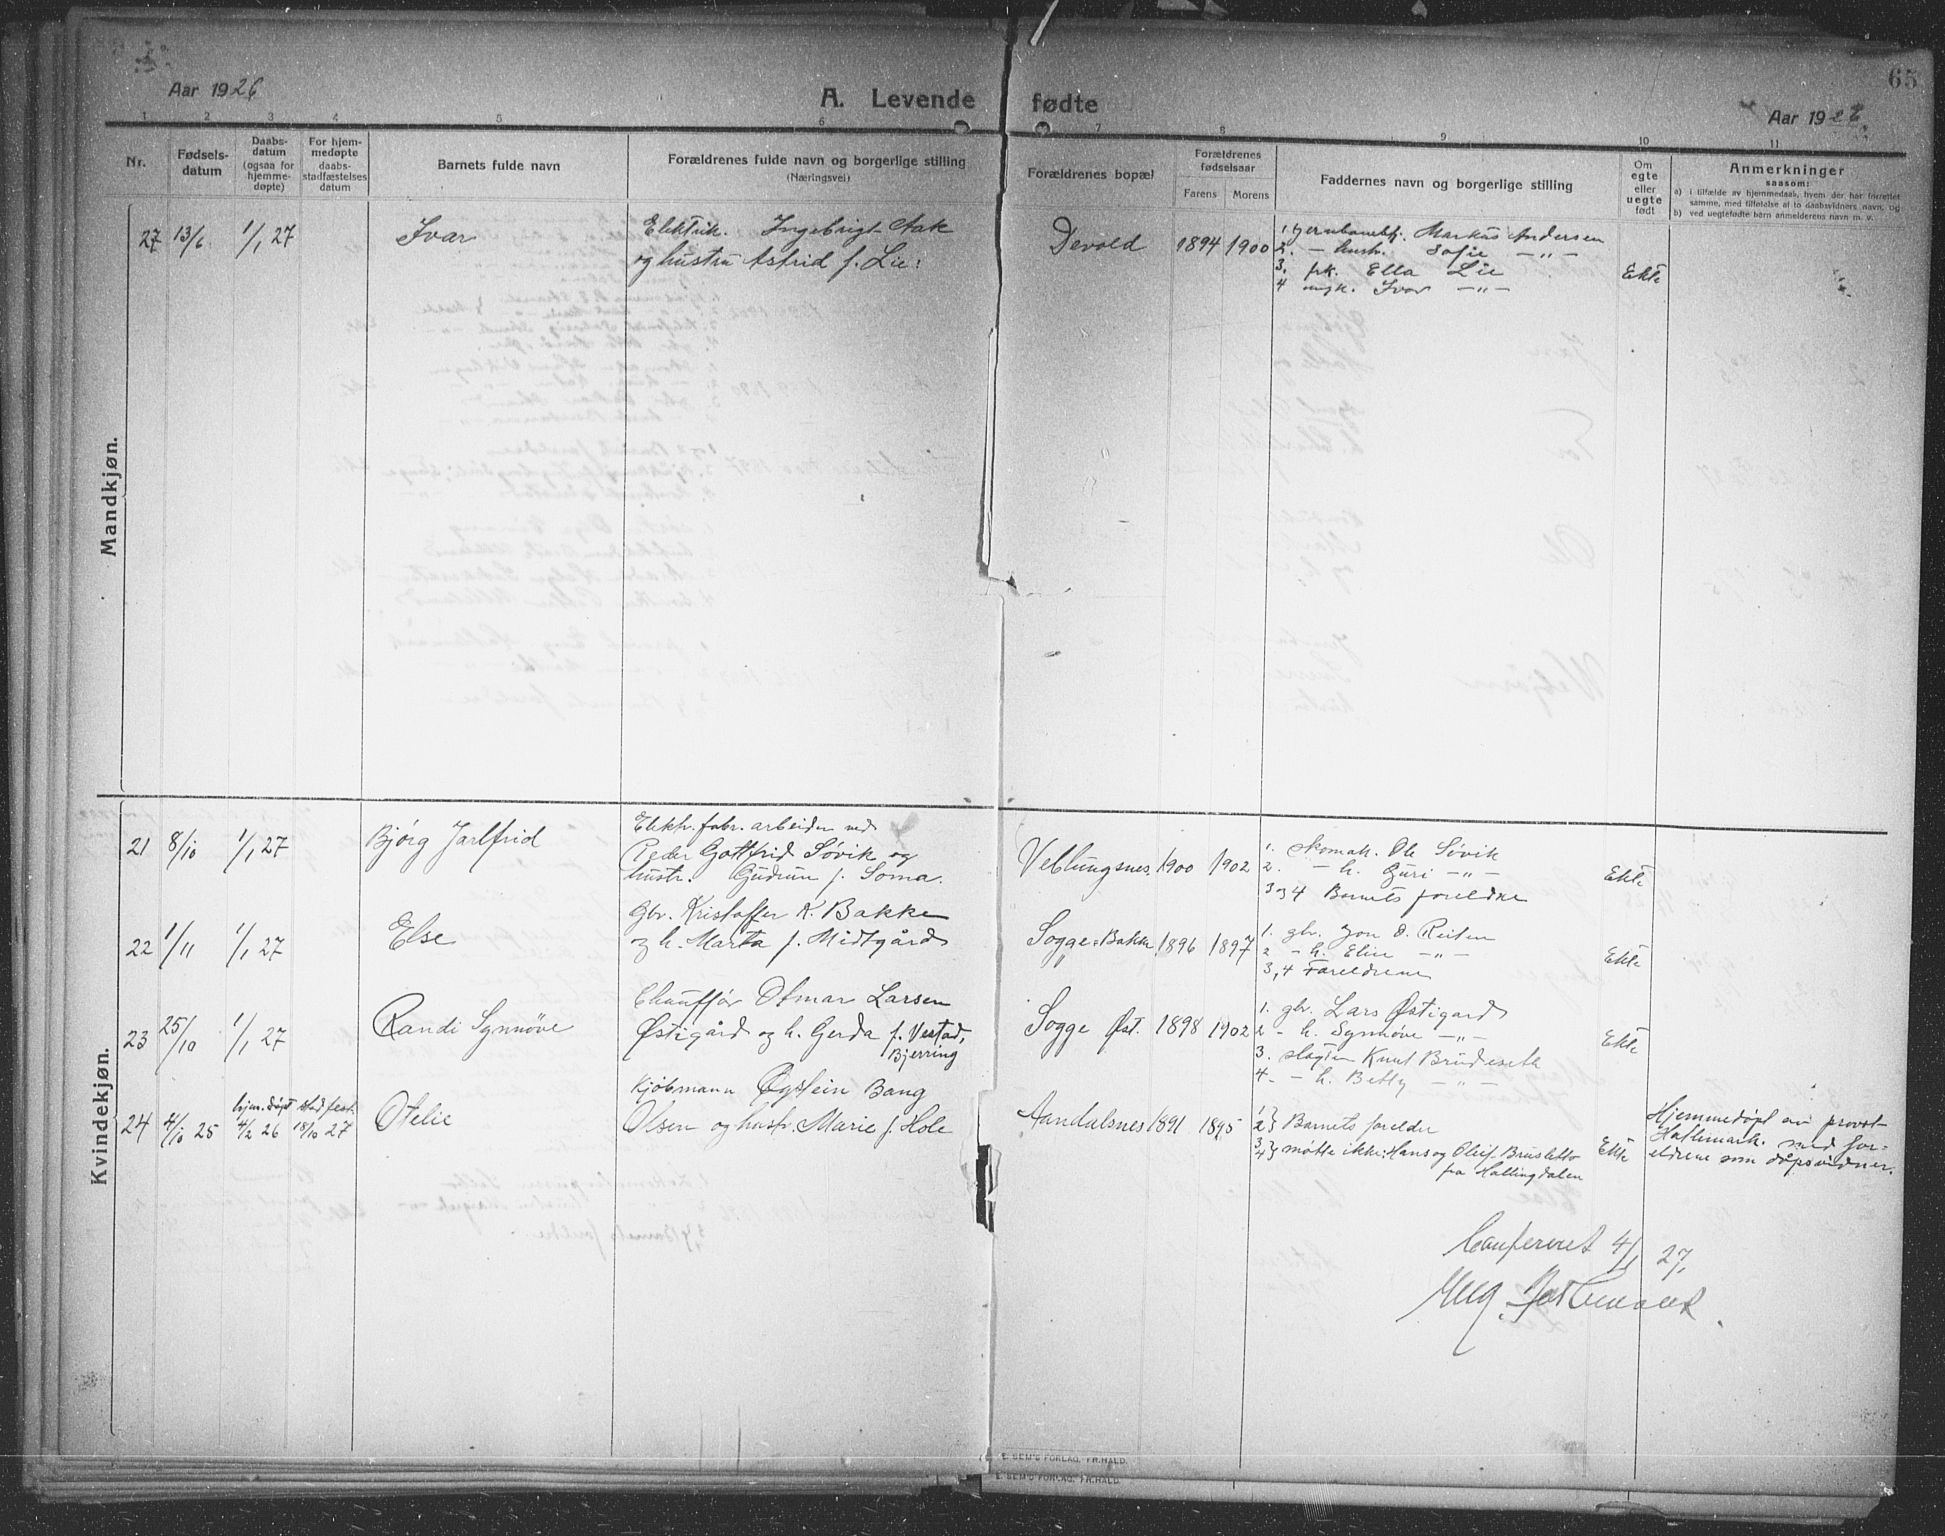 65
Aar 1926
A. Levende fødte
Aar 1926
1 2 3 4 5 6 7 8 9 10 11
Nr.
Fødsels-
datum
Daabs-
datum
(ogsaa for
hjemme-
døpte)
For hjem-
medøpte
daabs-
stadfæstelses
datum
Barnets fulde navn
Forældrenes fulde navn og borgerlige stilling
(Næringsvei)
Forældrenes bopæl
Forældrenes
fødselsaar
Farens Morens
Faddernes navn og borgerlige stilling
Om
egte
eller
uegte
født
Anmerkninger
saasom:
a) i tilfælde av hjemmedaab, hvem der har forrettet
samme, med tilføielse af to daabsvidners navn, og
b) ved uegtefødte barn anmelderens navn m. v.
Mandkjøn.
27 13/6 1/1 27
Ivar
Elektrik. Ingebrigt Aak
og hustru Astrid f. Lie.
Devold 1894 1900
1. jernbanebtj. Markus Andersen
2. - hustr. Sofie -"-
3. frk. Ella Lie
4 ungk. Ivar -"-
Ekte
Kvindekjøn.
21 8/10 1/1 27
Bjørg Jarlfrid
Elektr. fabr. arbeider ved
Peder Gottfrid Søvik og
hustr. Gudrun f. Soma.
Veblungsnes 1900 1902
1. skomak. Ole Søvik
2. - h. Guri -"-
3 og 4 Barnets foreldre
Ekte
22 1/11 1/1 27
Else
Gbr. Kristoffer K. Bakke
og h. Marta f. Midtgård
Sogge, Bakke 1896 1897
1. gbr. Jon O. Reiten
2 - h. Elin -"-
3,4 Foreldrene
Ekte
23 25/10 1/1 27
Randi Synnøve
Chauffør Otmar Larsen
Østigård og h. Gerda f. Vestad,
Bjerring
Sogge Øst. 1898 1902
1. gbr. Lars Østigård
2 - h. Synnøve -"-
3. slagter Knut Brudeseth
4. - h. Betty -"-
Ekte
24 4/10 25
hjem. døpt
4/2 26
stadfest.
18/10 27
Otelie
Kjøbmann Øystein Bang
Olsen og hustr. Marie f. Hole
Aandalsnes 1891 1895
1} 2} Barnets forelder
3} 4} møtte ikke: Hans og Oleif Brusletto
fra Hallingdalen
Ekte
Hjemmedøpt av provst
Hallemark. med for-
eldrene som dåpsvidner.
Confereret 4/1 27.
E. SEM'S FORLAG, FR.HALD.
E. SEM'S FORLAG, FR.HALD.